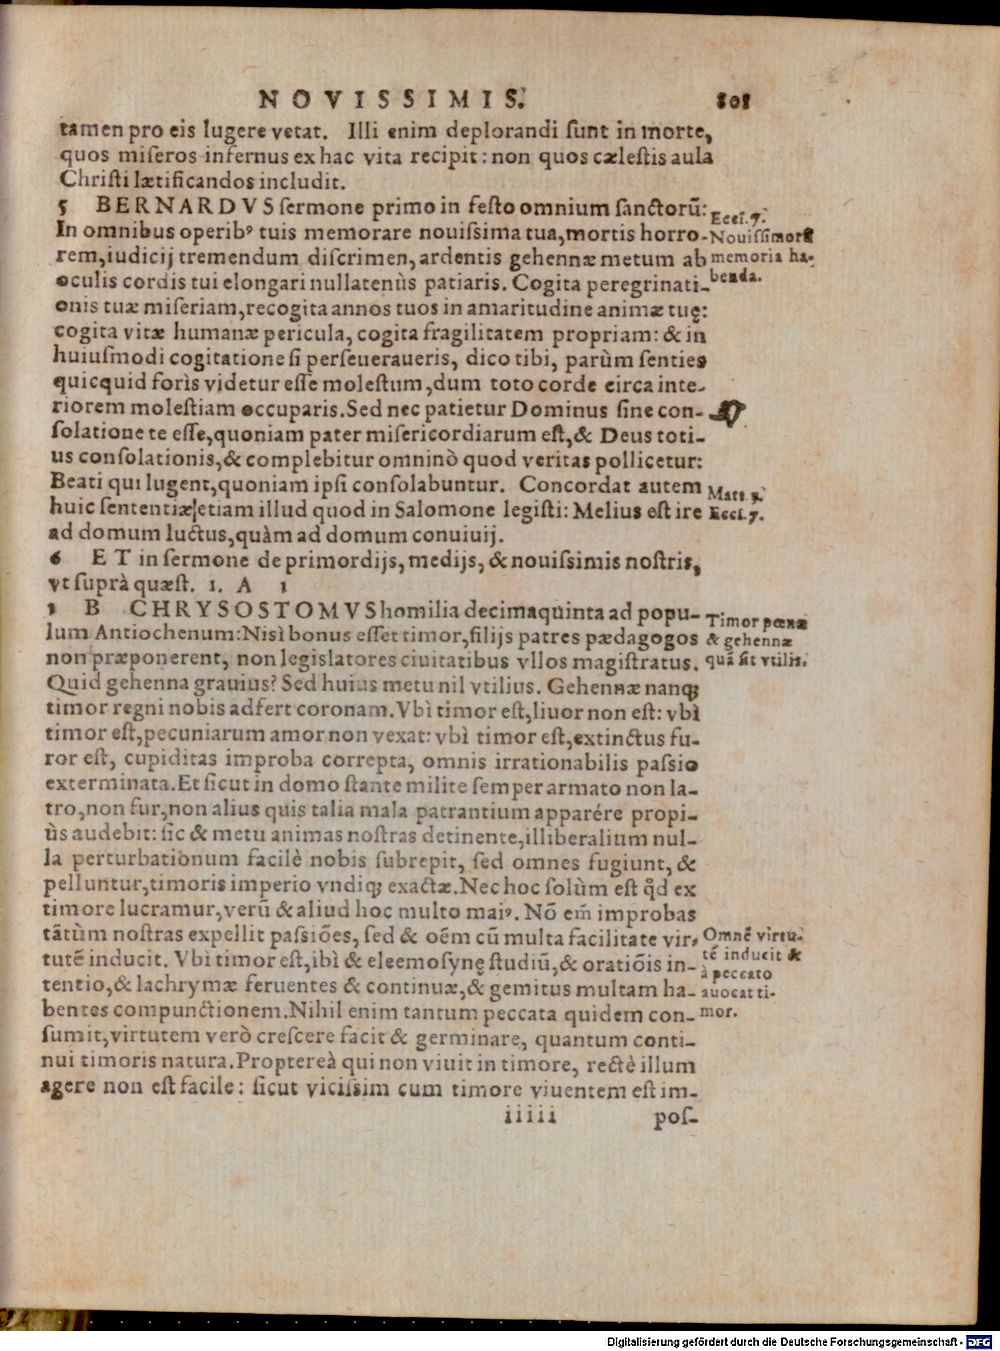 NOVISSIMIS. 801
tamen pro eis lugere vetat. Illi enim deplorandi ſunt in morte,
quos miſeros infernus ex hac vita recipit: non quos cæleſtis aula
Chriſti lætificandos includit.
5 BERNARDVS ſermone primo in feſto omnium ſanctorũ:
In omnibus operibꝰ tuis memorare nouiſsima tua, mortis horro-
rem, iudicij tremendum diſcrimen, ardentis gehennæ metum ab
oculis cordis tui elongari nullatenùs patiaris. Cogita peregrinati-
onis tuæ miſeriam, recogita annos tuos in amaritudine animæ tuę:
cogita vitæ humanæ pericula, cogita fragilitatem propriam: & in
huiuſmodi cogitatione ſi perſeueraueris, dico tibi, parùm ſenties
quicquid forìs videtur eſſe moleſtum, dum toto corde circa inte-
riorem moleſtiam occuparis. Sed nec patietur Dominus ſine con-
ſolatione te eſſe, quoniam pater miſericordiarum eſt, & Deus toti-
us conſolationis, & complebitur omninò quod veritas pollicetur:
Beati qui lugent, quoniam ipſi conſolabuntur. Concordat autem
huic ſententiæ etiam illud quod in Salomone legiſti: Melius eſt ire
ad domum luctus, quàm ad domum conuiuij.
6 ET in ſermone de primordijs, medijs, & nouiſsimis noſtris,
vt ſuprà quæſt. 1. A 1
1 B CHRYSOSTOMVS homilia decimaquinta ad popu-
lum Antiochenum: Niſì bonus eſſet timor, filijs patres pædagogos
non præponerent, non legislatores ciuitatibus vllos magiſtratus.
Quid gehenna grauius? Sed huius metu nil vtilius. Gehennæ nanq;
timor regni nobis adfert coronam. Vbì timor eſt, liuor non eſt: vbì
timor eſt, pecuniarum amor non vexat: vbì timor eſt, extinctus fu-
ror eſt, cupiditas improba correpta, omnis irrationabilis paſsio
exterminata. Et ſicut in domo ſtante milite ſemper armato non la-
tro, non fur, non alius quis talia mala patrantium apparére propi-
ùs audebit: ſic & metu animas noſtras detinente, illiberalium nul-
la perturbationum facilè nobis ſubrepit, ſed omnes fugiunt, &
pelluntur, timoris imperio vndiq; exactæ. Nec hoc ſolùm eſt q̃d ex
timore lucramur, verũ & aliud hoc multo maiꝰ. Nõ em̃ improbas
tãtùm noſtras expellit paſsiões, ſed & oẽm cũ multa facilitate vir-
tutẽ inducit. Vbì timor eſt, ibì & eleemoſynę ſtudiũ, & oratiõis in-
tentio, & lachrymæ feruentes & continuæ, & gemitus multam ha-
bentes compunctionem. Nihil enim tantum peccata quidem con-
ſumit, virtutem verò creſcere facit & germinare, quantum conti-
nui timoris natura. Proptereà qui non viuit in timore, rectè illum
agere non eſt facile: ſicut viciſsim cum timore viuentem eſt im-
iiiii poſ-
Eccl. 7.
Nouiſſimorũ
memoria ha-
benda.
Matt. 5.
Eccl. 7.
Timor pœnæ
& gehennæ
quã ſit vtilis.
Omnẽ virtu-
tẽ inducit &
à peccato
auocat ti-
mor.
Digitalisierung gefördert durch die Deutsche Forschungsgemeinschaft - DFG